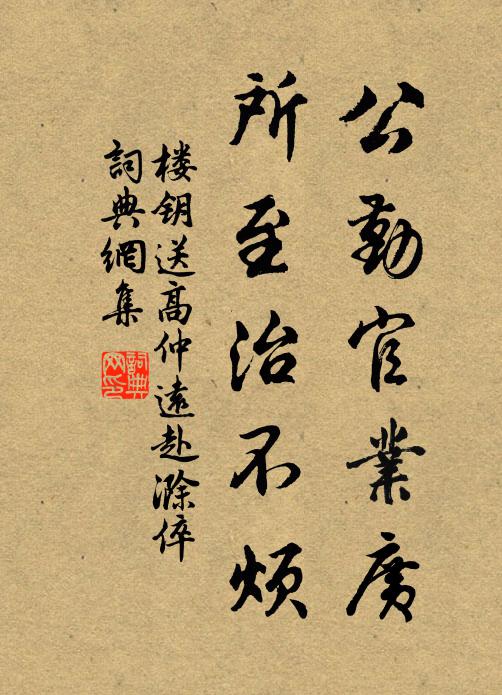 公勤官業廣
所至治不煩
楼钥送高仲遠赴滁倅
詞典網集
詞典网印